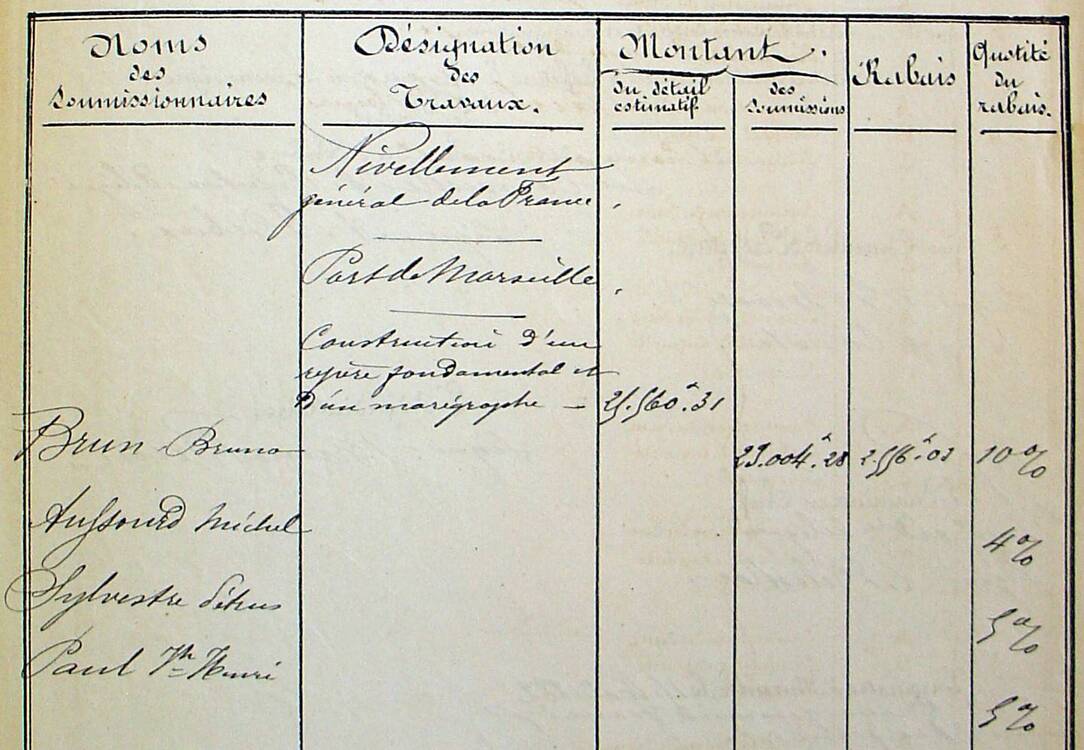 Noms
des
Soumissionnaires
Désignation
des
Travaux.
Montant.
du détail
estimatif
des
Soumissions
Rabais
Quotité
du
rabais.
Nivellement
général de la France
Port de Marseille
Construction d'un
repère fondamental et
d'un marégraphe — 25.560.31
Brun Bruno 23.004.28 2.556.03 10%
Aussourd Michel 4%
Sylvestre 5%
Paul Henri 5%